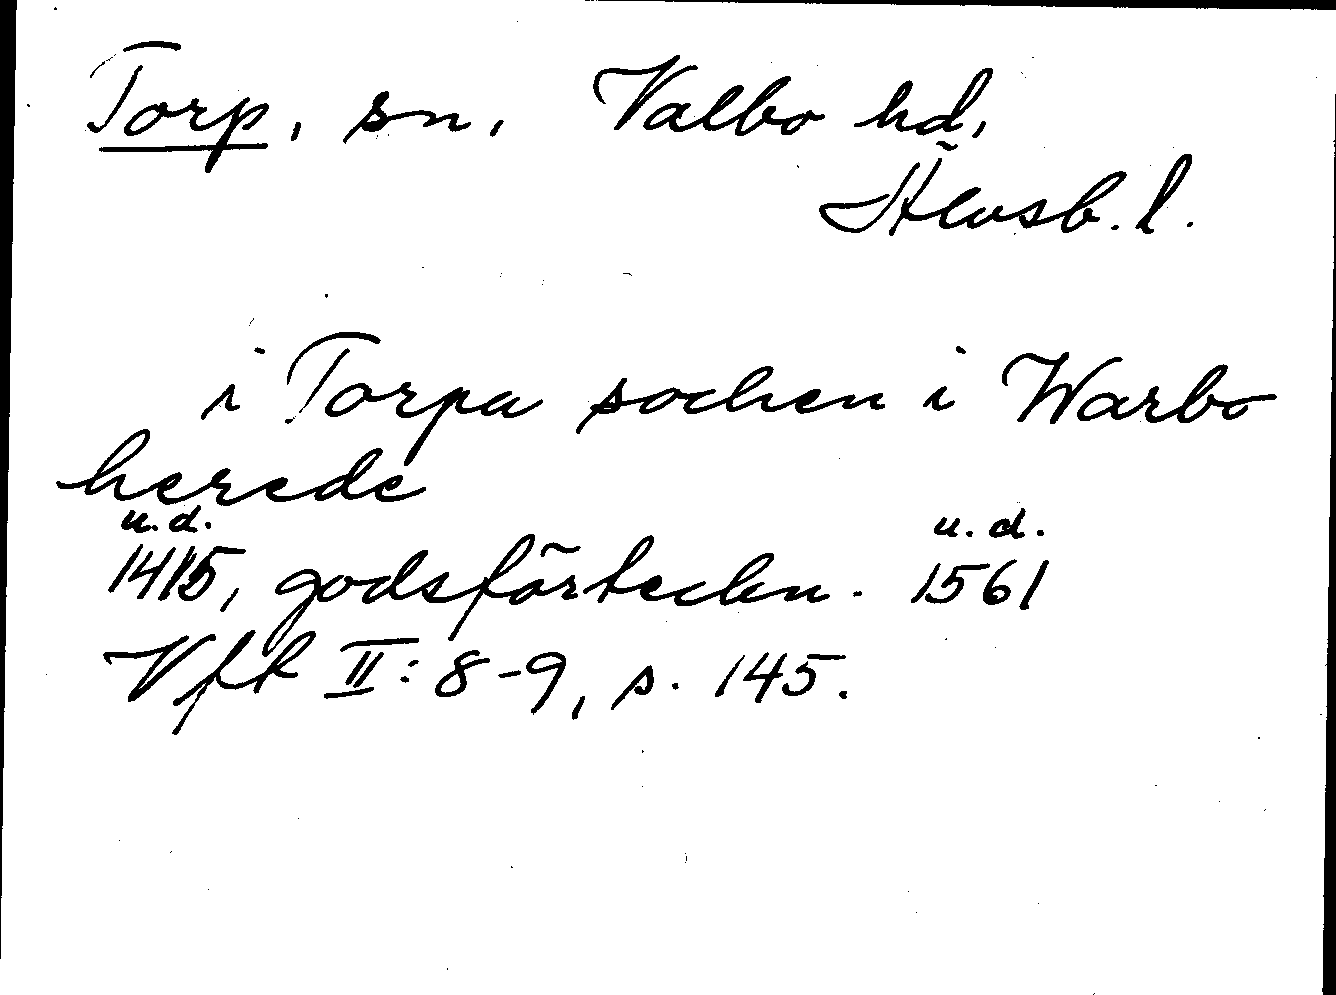 Torp, sn, Valbo hd,
Älvsb. l.
i Torpa sochen i Warbo
herede
u.d. u.d.
1415, godsförteckn. 1561
Vft II: 8-9, s. 145.